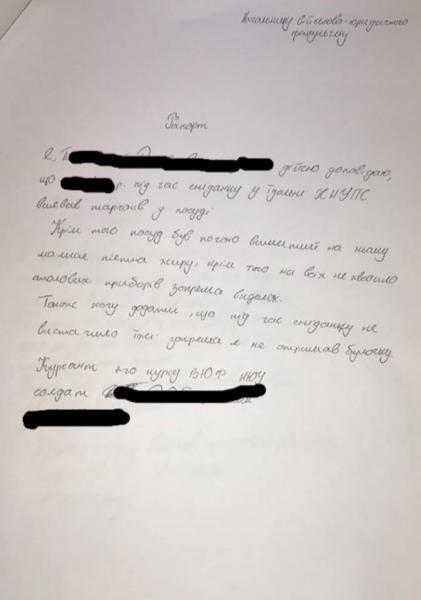 Начальнику військово-юридичного
факультету
Рапорт
Я, дійсно доповідаю,
що р. під час сніданку у їдальні ХНУПС
виявив тарганів у посуді.
Крім того посуд був погано вимитий на ньому
малися плятна жиру, крім того на всіх не хватило
столових приборів зокрема виделок.
Також хочу додати, що під час сніданку не
вистачило їжі зокрема я не отримав булочку.
Курсант курсу ВЮФ НЮУ
солдат